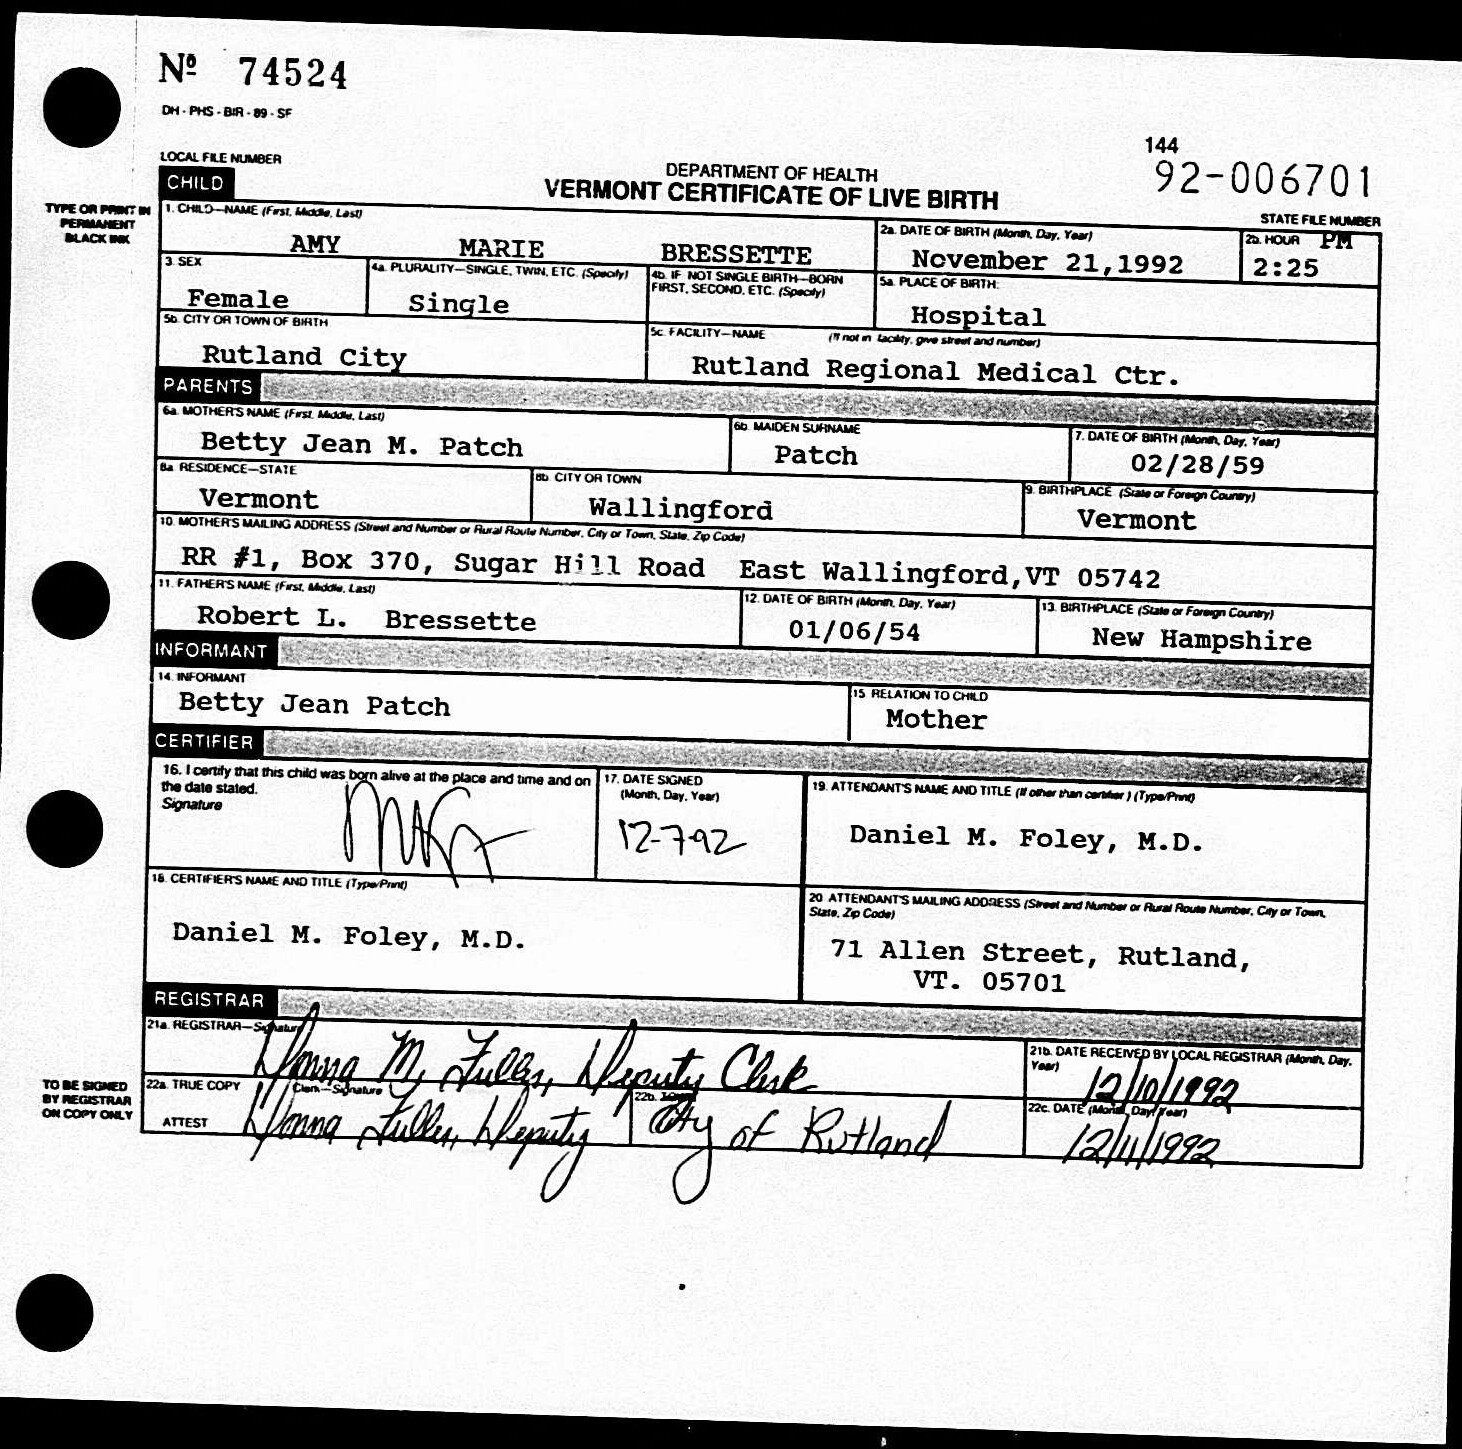 Nº 74524
DH - PHS - BIR - 89 - SF
144
92-006701
LOCAL FILE NUMBER
DEPARTMENT OF HEALTH
VERMONT CERTIFICATE OF LIVE BIRTH
STATE FILE NUMBER
CHILD
TYPE OR PRINT IN
PERMANENT
BLACK INK
1. CHILD—NAME (First, Middle, Last)
AMY MARIE BRESSETTE
2a. DATE OF BIRTH (Month, Day, Year)
November 21,1992
2b. HOUR PM
2:25
3. SEX
Female
4a. PLURALITY—SINGLE, TWIN, ETC. (Specify)
Single
4b. IF NOT SINGLE BIRTH—BORN
FIRST, SECOND, ETC. (Specify)
5a. PLACE OF BIRTH:
Hospital
5b. CITY OR TOWN OF BIRTH
Rutland City
5c. FACILITY—NAME (If not in facility, give street and number)
Rutland Regional Medical Ctr.
PARENTS
6a. MOTHER'S NAME (First, Middle, Last)
Betty Jean M. Patch
6b. MAIDEN SURNAME
Patch
7. DATE OF BIRTH (Month, Day, Year)
02/28/59
8a. RESIDENCE—STATE
Vermont
8b. CITY OR TOWN
Wallingford
9. BIRTHPLACE (State or Foreign Country)
Vermont
10. MOTHER'S MAILING ADDRESS (Street and Number or Rural Route Number, City or Town, State, Zip Code)
RR #1, Box 370, Sugar Hill Road East Wallingford,VT 05742
11. FATHER'S NAME (First, Middle, Last)
Robert L. Bressette
12. DATE OF BIRTH (Month, Day, Year)
01/06/54
13. BIRTHPLACE (State or Foreign Country)
New Hampshire
INFORMANT
14. INFORMANT
Betty Jean Patch
15 RELATION TO CHILD
Mother
CERTIFIER
16. I certify that this child was born alive at the place and time and on
the date stated.
Signature
17. DATE SIGNED
(Month, Day, Year)
12-7-92
19. ATTENDANT'S NAME AND TITLE (If other than certifier) (Type/Print)
Daniel M. Foley, M.D.
18. CERTIFIER'S NAME AND TITLE (Type/Print)
Daniel M. Foley, M.D.
20 ATTENDANT'S MAILING ADDRESS (Street and Number or Rural Route Number, City or Town,
State, Zip Code)
71 Allen Street, Rutland,
VT. 05701
REGISTRAR
21a. REGISTRAR—Signature
Donna M. Fuller, Deputy Clerk
21b. DATE RECEIVED BY LOCAL REGISTRAR (Month, Day,
Year)
12/10/1992
TO BE SIGNED
BY REGISTRAR
ON COPY ONLY
22a. TRUE COPY
Clerk—Signature
ATTEST
Donna Fuller, Deputy
22b. TOWN
City of Rutland
22c. DATE (Month, Day, Year)
12/11/1992